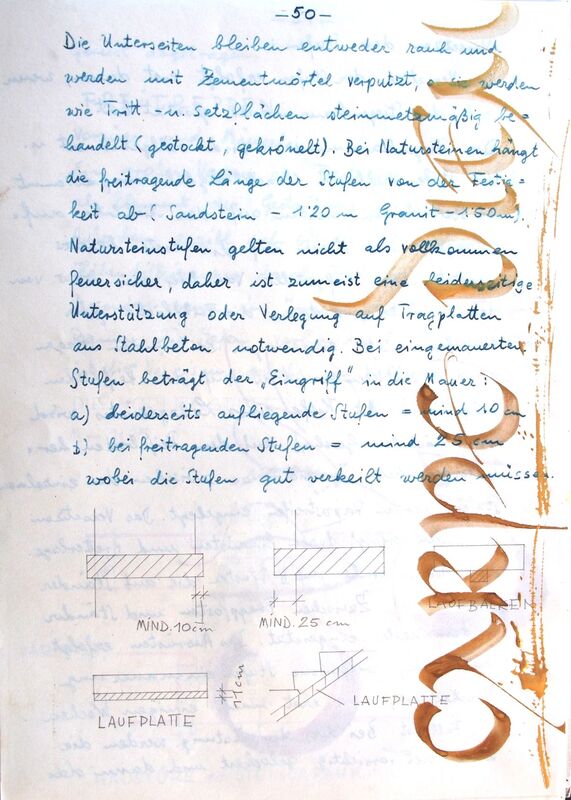 -50-
Die Unterseiten bleiben entweder rauh und
werden mit Zementmörtel verputzt, o. sie werden
wie Tritt- u. Setzflächen steinmetzmäßig be=
handelt (gestockt, gekrönelt). Bei Natursteinen hängt
die freitragende Länge der Stufen von der Festig=
keit ab (Sandstein - 1'20 m Granit - 1'50 m).
Natursteinstufen gelten nicht als vollkommen
feuersicher, daher ist zumeist eine beiderseitige
Unterstützung oder Verlegung auf Tragplatten
aus Stahlbeton notwendig. Bei eingemauerten
Stufen beträgt der „Eingriff" in die Mauer:
a) beiderseits aufliegende Stufen = mind 10 cm
b) bei freitragenden Stufen = mind 25 cm
wobei die Stufen gut verkeilt werden müssen.
MIND. 10 cm
MIND. 25 cm
LAUFBALKEN
11 cm
LAUFPLATTE
LAUFPLATTE
carpe diem